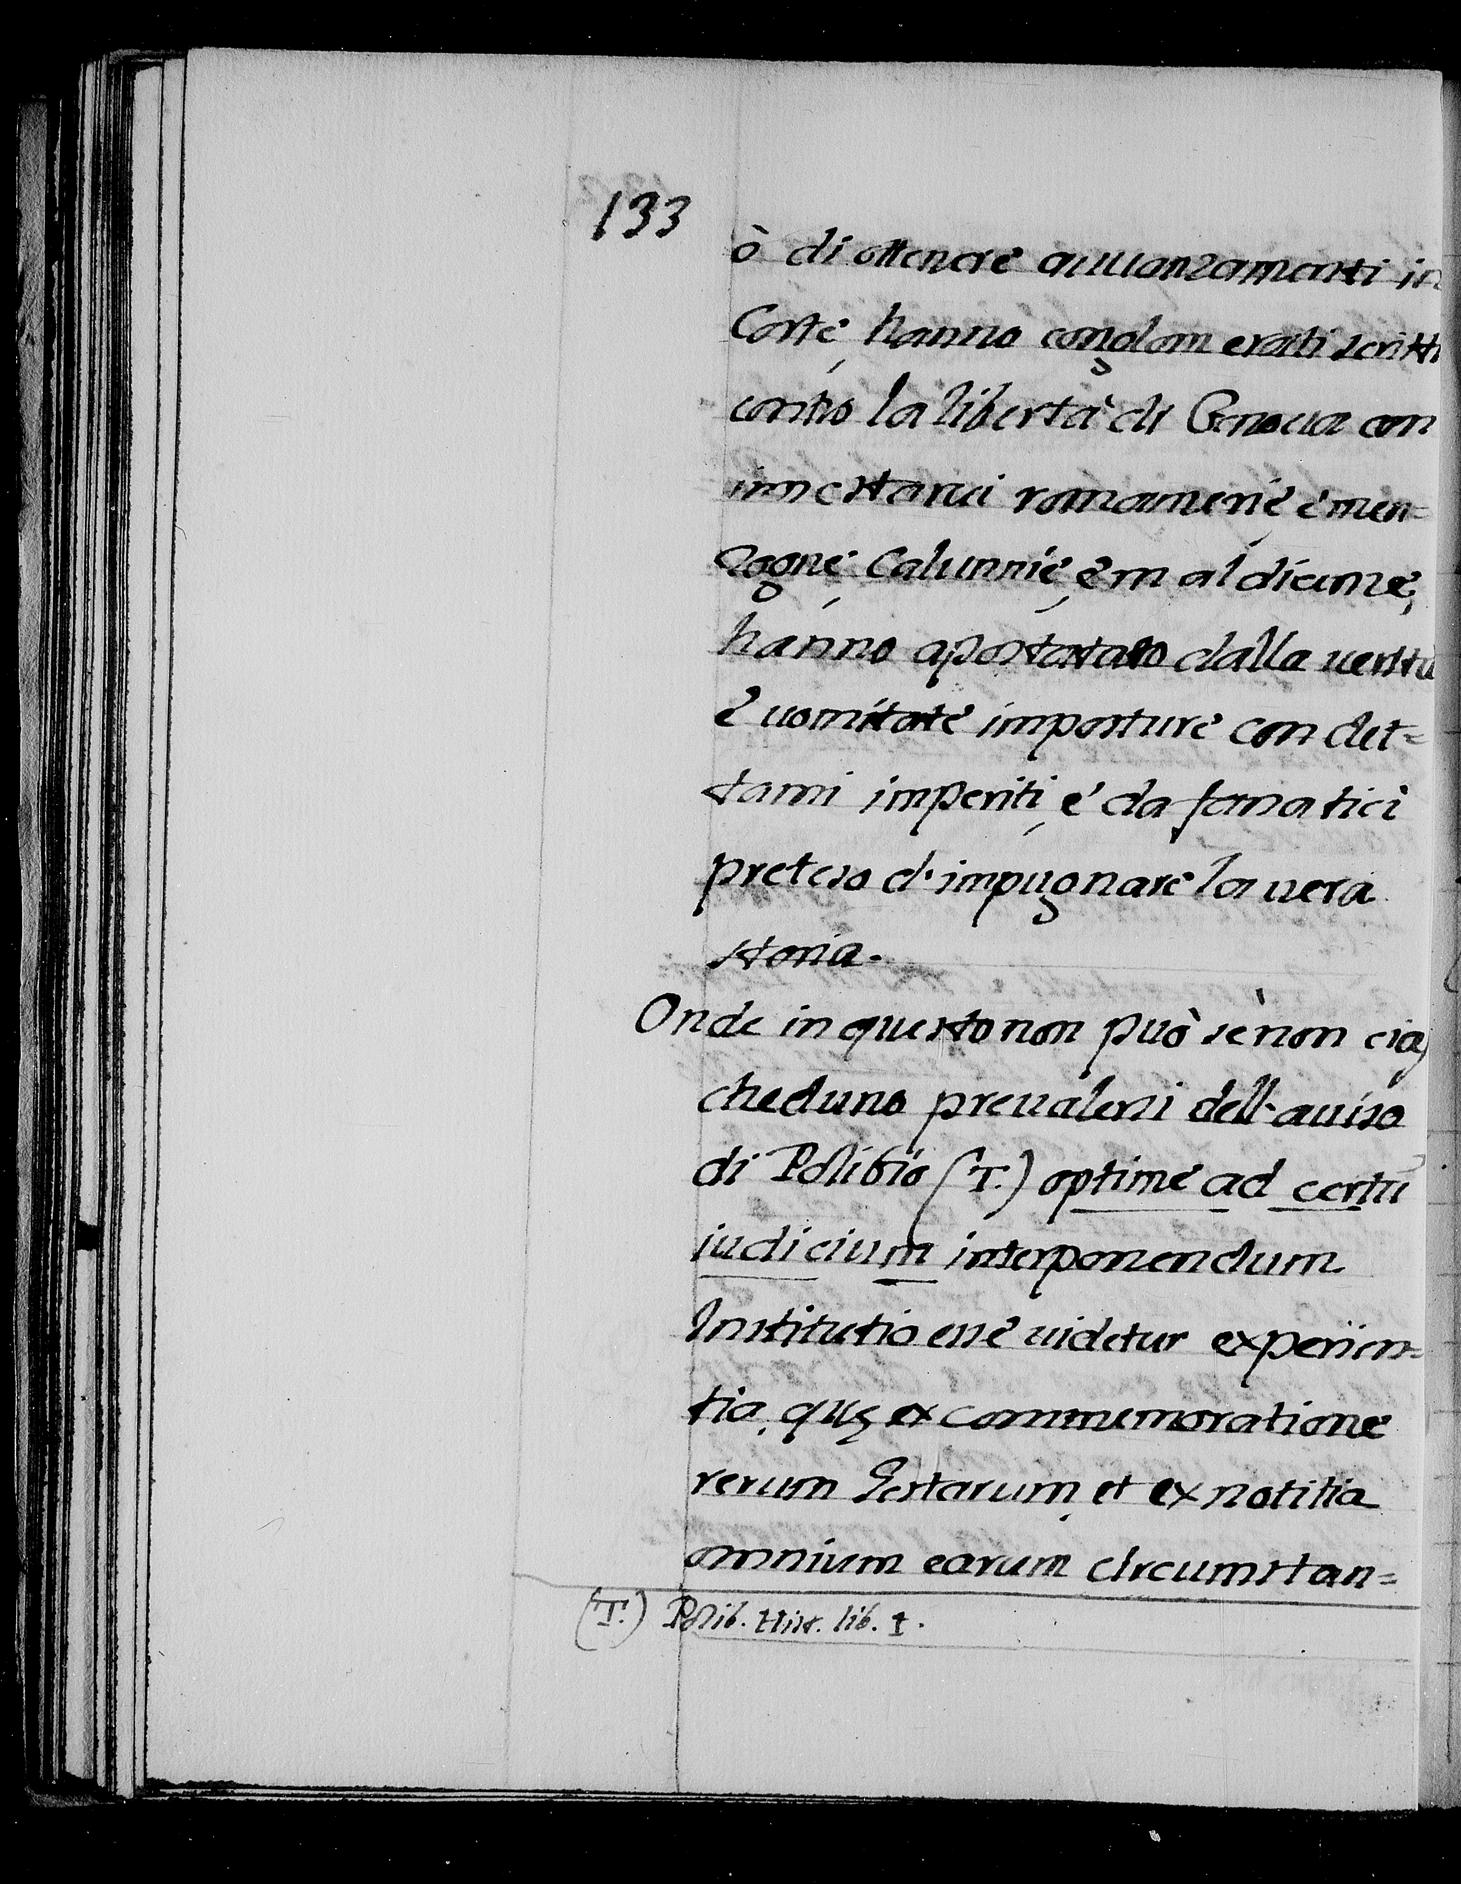 133
ò di ottenere auuanzamenti in
Corte, hanno conglomerati scritti
contro la libertà di Genoua con
innestarui romanserie è men=
zogne, Calunnie, è maldicenze,
hanno apostatato dalla verità
è uomitate imposture con det=
tami imperiti, è da fanatici
preteso d'impugnare la uera
storia.
Onde in questo non può sè non cia
cheduno preualersi dell'auiso
di Polibio (T.) optime ad certũ
iudicium interponendum
Institutio esse uidetur experien=
tia, quę ex commemoratione
rerum Gestarum, et ex notitia
omnium earum circumstan=
(T.) Polib. Hist. lib. 1.